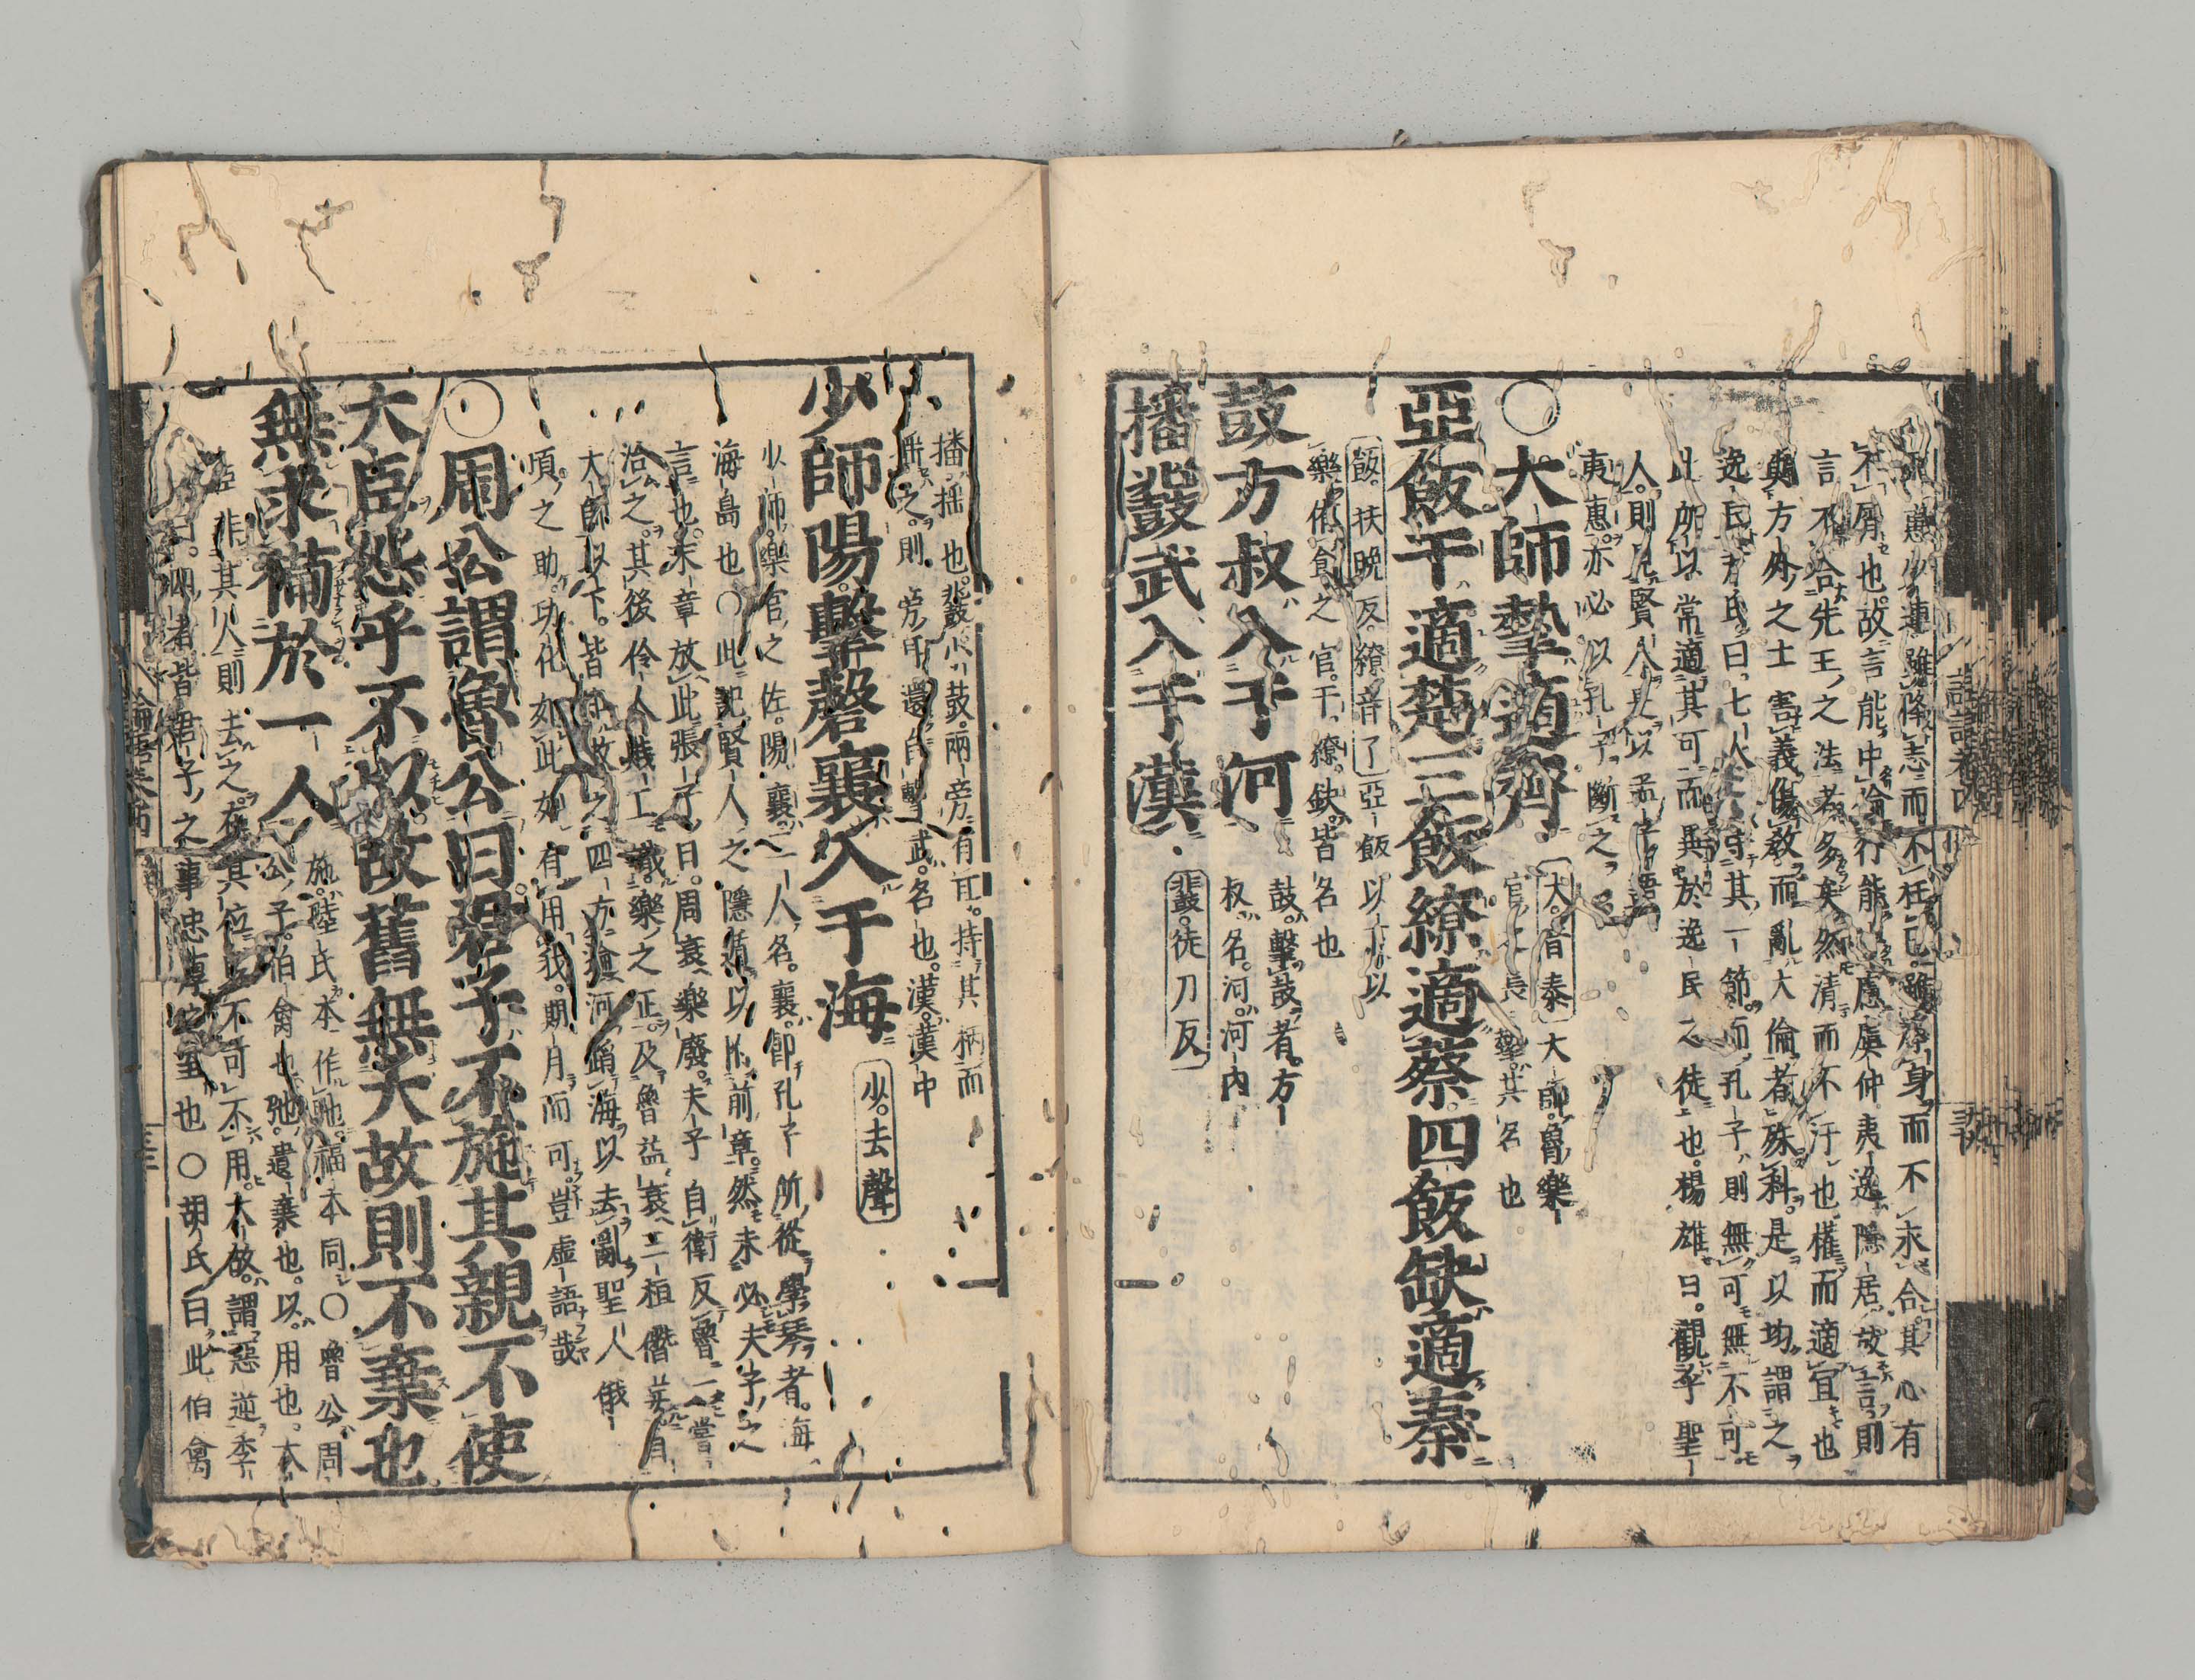 惠少連雖降志而不枉己雖辱身而不求合其心有
不屑也故言能中倫行能中慮虞仲夷逸隱居放言則
言不合先王之法者多矣然清而不汙也權而適宜也
與方外之士害義傷教而亂大倫者殊科是以均謂之
逸民尹氏曰七人各守其一節而孔子則無可無不可
此所以常適其可而異於逸民之徒也楊雄曰觀乎聖
人則見賢人是以孟子語
夷惠亦必以孔子斷之
○大師摯適齊
大音泰大師魯樂
官之長摯其名也
亞飯干適楚三飯繚適蔡四飯缺適秦
飯扶晚反繚音了亞飯以下以
樂侑食之官干繚缺皆名也
鼓方叔入于河
鼓擊鼓者方
叔名河河內
播鼗武入于漢
鼗徒刀反
播搖也鼗小鼓兩旁有耳持其柄而
搖之則旁耳還自擊武名也漢漢中
少師陽擊磬襄入于海
少去聲
少師樂官之佐陽襄二人名襄即孔子所從學琴者海
海島也○此記賢人之隱遁以附前章然未必夫子之
言也末章放此張子曰周衰樂廢夫子自衛反魯一嘗
治之其後伶人賤工識樂之正及魯益衰三桓僭妄自
大師以下皆知散之四方逾河蹈海以去亂聖人俄
頃之助功化如此如有用我期月而可豈虛語哉
○周公謂魯公曰君子不施其親不使
大臣怨乎不以故舊無大故則不棄也
無求備於一人
施陸氏本作弛福本同○魯公周
公子伯禽也弛遺棄也以用也大
臣非其人則去之在其位則不可不用大故謂惡逆李
氏曰四者皆君子之事忠厚之至也○胡氏曰此伯禽